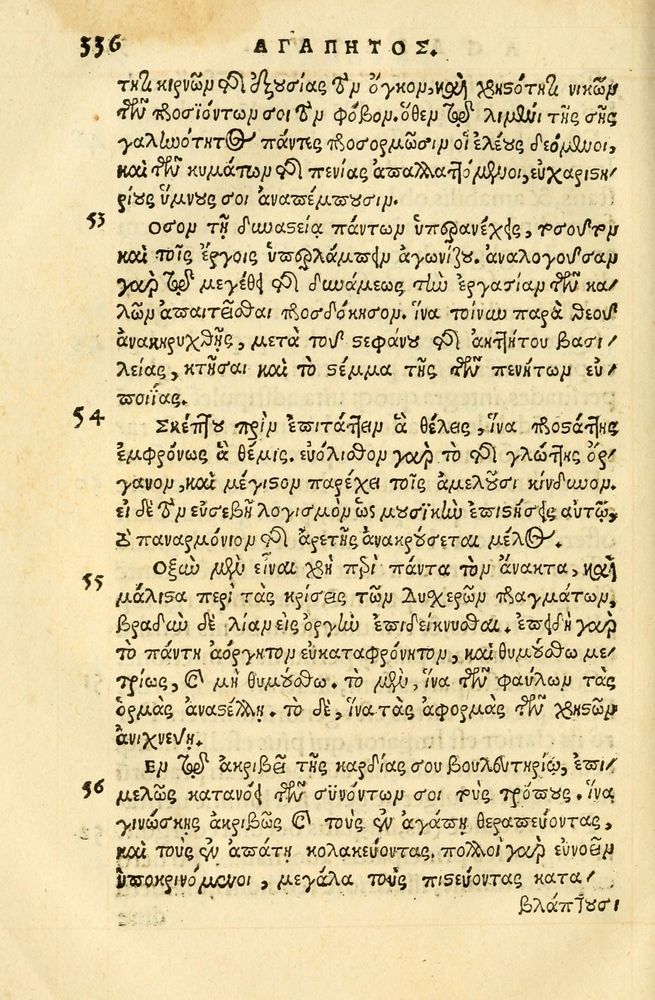 336 ΑΓΑΠΗΤΟΣ.
τητι κιρνῶν τῆς ἐξουσίας τὸν ὄγκον, καὶ χρηστότητι νικῶν
τῶν προσϊόντων σοι τὸν φόβον. ὅθεν τῷ λιμένι τῆς σῆς
γαληνότητος πάντες προσορμῶσιν οἱ ἐλέους δεόμενοι,
καὶ τῶν κυμάτων τῆς πενίας ἀπαλλαττόμενοι, εὐχαριστη-
ρίους ὕμνους σοι ἀναπέμπουσιν.
53 Οσον τῇ δυναστείᾳ πάντων ὑπερανέχεις, τοσοῦτον
καὶ τοῖς ἔργοις ὑπερλάμπειν ἀγωνίζου. ἀναλογοῦσαν
γὰρ τῷ μεγέθει τῆς δυνάμεως τὴν ἐργασίαν τῶν κα-
λῶν ἀπαιτεῖσθαι προσδόκησον. ἵνα τοίνυν παρὰ θεοῦ
ἀνακηρυχθῇς, μετὰ τοῦ στεφάνου τῆς ἀηττήτου βασι-
λείας, κτῆσαι καὶ τὸ στέμμα τῆς τῶν πενήτων εὐ-
ποιΐας.
54 Σκέπτου πρὶν ἐπιτάττειν ἃ θέλεις, ἵνα προστάττῃς
ἐμφρόνως ἃ θέμις. εὐόλισθον γὰρ τὸ τῆς γλώττης ὄρ-
γανον, καὶ μέγιστον παρέχει τοῖς ἀμελοῦσι κίνδυνον.
εἰ δὲ τὸν εὐσεβῆ λογισμὸν ὡς μουσικὸν ἐπιστήσεις αὐτῷ,
τὸ παναρμόνιον τῆς ἀρετῆς ἀνακρούσεται μέλος.
55 Οξὺν μὲν εἶναι χρὴ περὶ πάντα τὸν ἄνακτα, καὶ
μάλιστα περὶ τὰς κρίσεις τῶν δυχερῶν πραγμάτων,
βραδὺν δὲ λίαν εἰς ὀργὴν ἐπιδείκνυσθαι. ἐπειδὴ γὰρ
τὸ πάντη ἀόργητον εὐκαταφρόνητον, καὶ θυμούσθω με-
τρίως, καὶ μὴ θυμούσθω. τὸ μὲν, ἵνα τῶν φαύλων τὰς
ὁρμὰς ἀναστέλλῃ. τὸ δὲ, ἵνα τὰς ἀφορμὰς τῶν χρηστῶν
ἀνιχνεύῃ.
56 Εν τῷ ἀκριβεῖ τῆς καρδίας σου βουλευτηρίῳ, ἐπι-
μελῶς κατανόει τῶν συνόντων σοι τοὺς τρόπους. ἵνα
γινώσκῃς ἀκριβῶς καὶ τοὺς ἐν ἀγάπῃ θεραπεύοντας,
καὶ τοὺς ἐν ἀπάτῃ κολακεύοντας. πολλοὶ γὰρ εὐνοεῖν
ὑποκρινόμενοι, μεγάλα τοὺς πιστεύοντας κατα-
βλάπτουσι